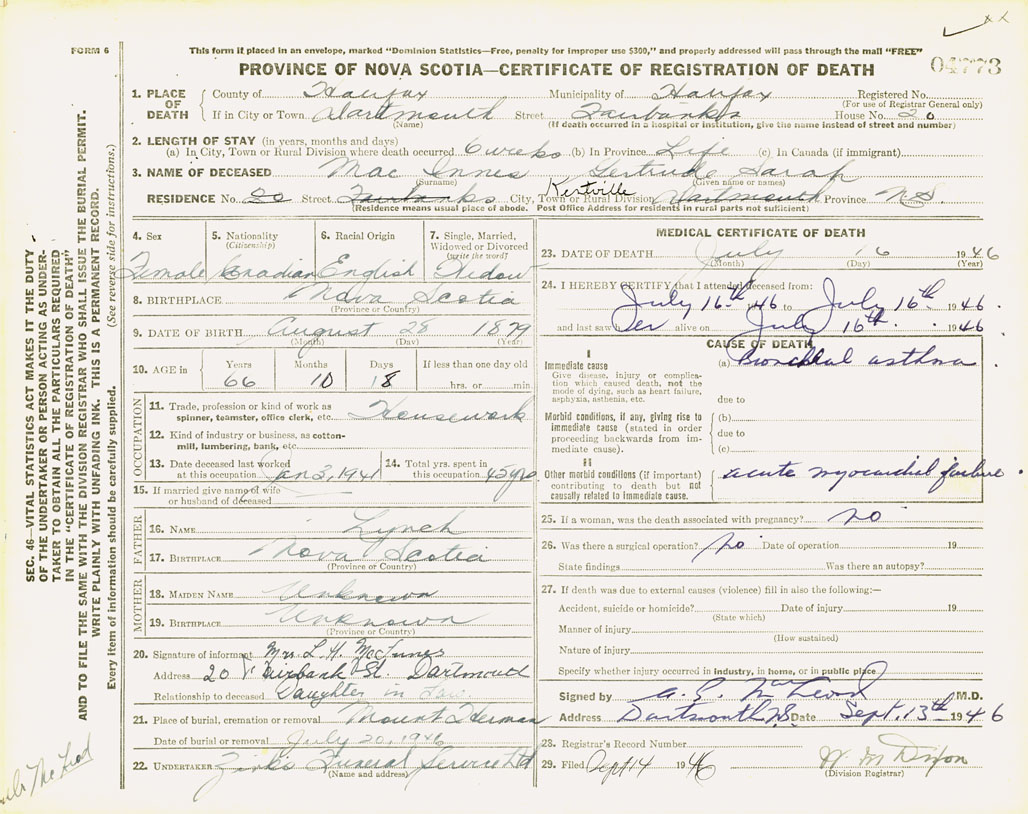 FORM 6
This form if placed in an envelope, marked "Dominion Statistics—Free, penalty for improper use $300," and properly addressed will pass through the mail "FREE"
PROVINCE OF NOVA SCOTIA—CERTIFICATE OF REGISTRATION OF DEATH
04773
1. PLACE OF DEATH
County of Halifax Municipality of Halifax Registered No.
(For use of Registrar General only)
If in City or Town Dartmouth Street Fairbanks House No. 20
(Name) (If death occurred in a hospital or institution, give the name instead of street and number)
2. LENGTH OF STAY (in years, months and days)
(a) In City, Town or Rural Division where death occurred 6 weeks (b) In Province Life (c) In Canada (if immigrant)
3. NAME OF DECEASED Mac Innes Gertrude Sarah
(Surname) (Given name or names)
Kentville
RESIDENCE No. 20 Street Fairbanks City, Town or Rural Division Dartmouth Province N.S.
(Residence means usual place of abode. Post Office Address for residents in rural parts not sufficient)
4. Sex
Female
5. Nationality
(Citizenship)
Canadian
6. Racial Origin
English
7. Single, Married, Widowed or Divorced
(write the word)
Widow
8. BIRTHPLACE Nova Scotia
(Province or Country)
9. DATE OF BIRTH August 28 1879
(Month) (Day) (Year)
10. AGE in
Years Months Days If less than one day old
66 10 18 hrs. or min.
OCCUPATION
11. Trade, profession or kind of work as Housework
spinner, teamster, office clerk, etc.
12. Kind of industry or business, as cotton-
mill, lumbering, bank, etc.
13. Date deceased last worked
at this occupation Jan 3, 1941
14. Total yrs. spent in
this occupation 45 yrs
15. If married give name of wife
or husband of deceased
FATHER
16. NAME Lynch
17. BIRTHPLACE Nova Scotia
(Province or Country)
MOTHER
18. MAIDEN NAME Unknown
19. BIRTHPLACE Unknown
(Province or Country)
20. Signature of informant Mrs. L. H. McInnes
Address 20 Fairbank St. Dartmouth
Relationship to deceased Daughter in Law
21. Place of burial, cremation or removal Mount Herman
Date of burial or removal July 20, 1946
22. UNDERTAKER Zink's Funeral Service Ltd
(Name and address)
MEDICAL CERTIFICATE OF DEATH
23. DATE OF DEATH July 16 1946
(Month) (Day) (Year)
24. I HEREBY CERTIFY that I attended deceased from:
July 16th 46 to July 16th 1946.
and last saw her alive on July 16th 1946
CAUSE OF DEATH
I
Immediate cause
Give disease, injury or complica-
tion which caused death, not the
mode of dying, such as heart failure,
asphyxia, asthenia, etc.
(a) Bronchial asthma
due to
Morbid conditions, if any, giving rise to
immediate cause (stated in order
proceeding backwards from im-
mediate cause).
(b)
due to
(c)
II
Other morbid conditions (if important)
contributing to death but not
causally related to immediate cause.
acute myocardial failure.
25. If a woman, was the death associated with pregnancy? no
26. Was there a surgical operation? no Date of operation 19
State findings Was there an autopsy?
27. If death was due to external causes (violence) fill in also the following:—
Accident, suicide or homicide? Date of injury 19
(State which)
Manner of injury
(How sustained)
Nature of injury
Specify whether injury occurred in industry, in home, or in public place
Signed by McLeod M.D.
Address Dartmouth N.S. Date Sept. 13th 1946
28. Registrar's Record Number
29. Filed Sept 14 1946 Dixon
(Division Registrar)
SEC. 46—VITAL STATISTICS ACT MAKES IT THE DUTY
OF THE UNDERTAKER OR PERSON ACTING AS UNDER-
TAKER TO OBTAIN ALL THE PARTICULARS REQUIRED
IN THE "CERTIFICATE OF REGISTRATION OF DEATH"
AND TO FILE THE SAME WITH THE DIVISION REGISTRAR WHO SHALL ISSUE THE BURIAL PERMIT.
WRITE PLAINLY WITH UNFADING INK. THIS IS A PERMANENT RECORD.
Every item of information should be carefully supplied. (See reverse side for instructions.)
McLeod